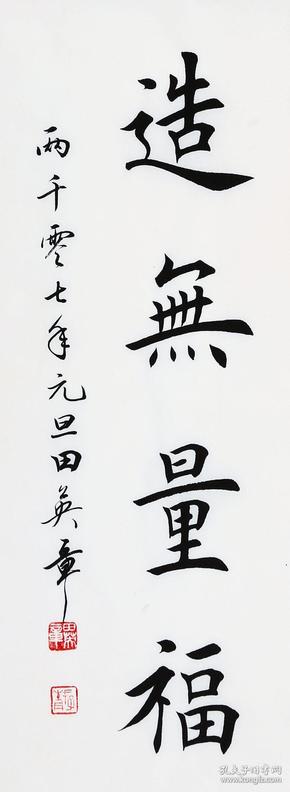 造無量福
兩千零七年元旦田英章
孔夫子旧书网